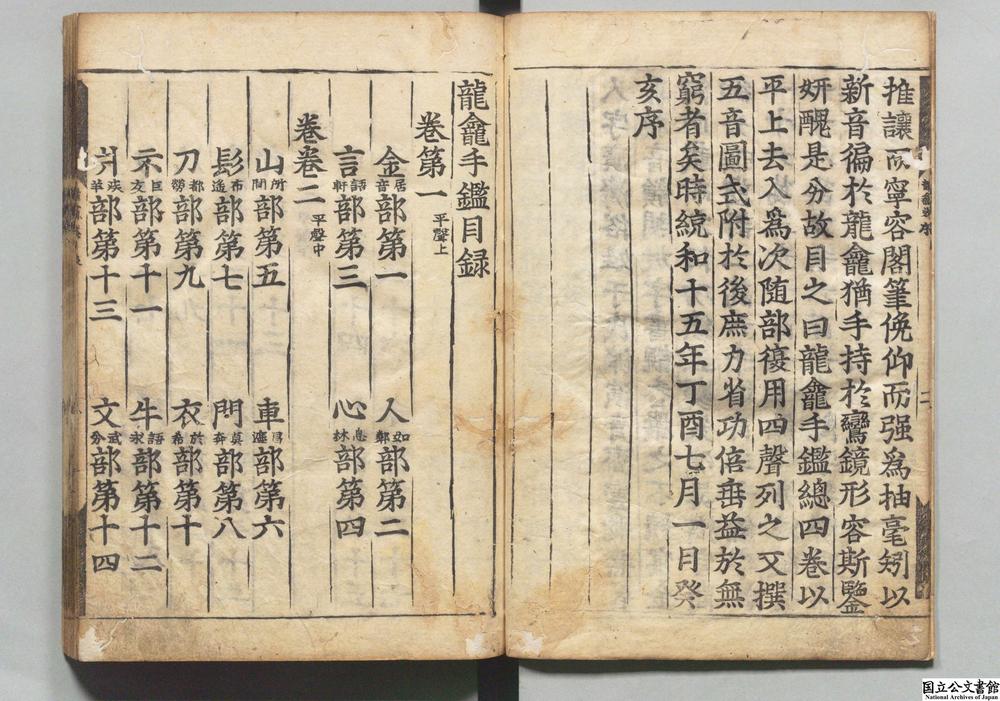 推讓而寧容閣筆俛仰而强爲抽毫矧以
新音徧於龍龕猶手持於鸞鏡形容斯鑒
妍醜是分故目之曰龍龕手鑑總四卷以
平上去入爲次随部復用四聲列之又撰
五音圖式附於後庶力省功倍垂益於無
窮者矣時統和十五年丁酉七月一日癸
亥序
龍龕手鑑目録
卷第一 平聲上
金居音部第一 人如鄰部第二
言語軒部第三 心息林部第四
卷卷二 平聲中
山所間部第五 車昌遮部第六
髟布遥部第七 門莫奔部第八
刀都勞部第九 衣於希部第十
示巨支部第十一 牛語求部第十二
部第十三 文武分部第十四
国立公文書館
National Archives of Japan